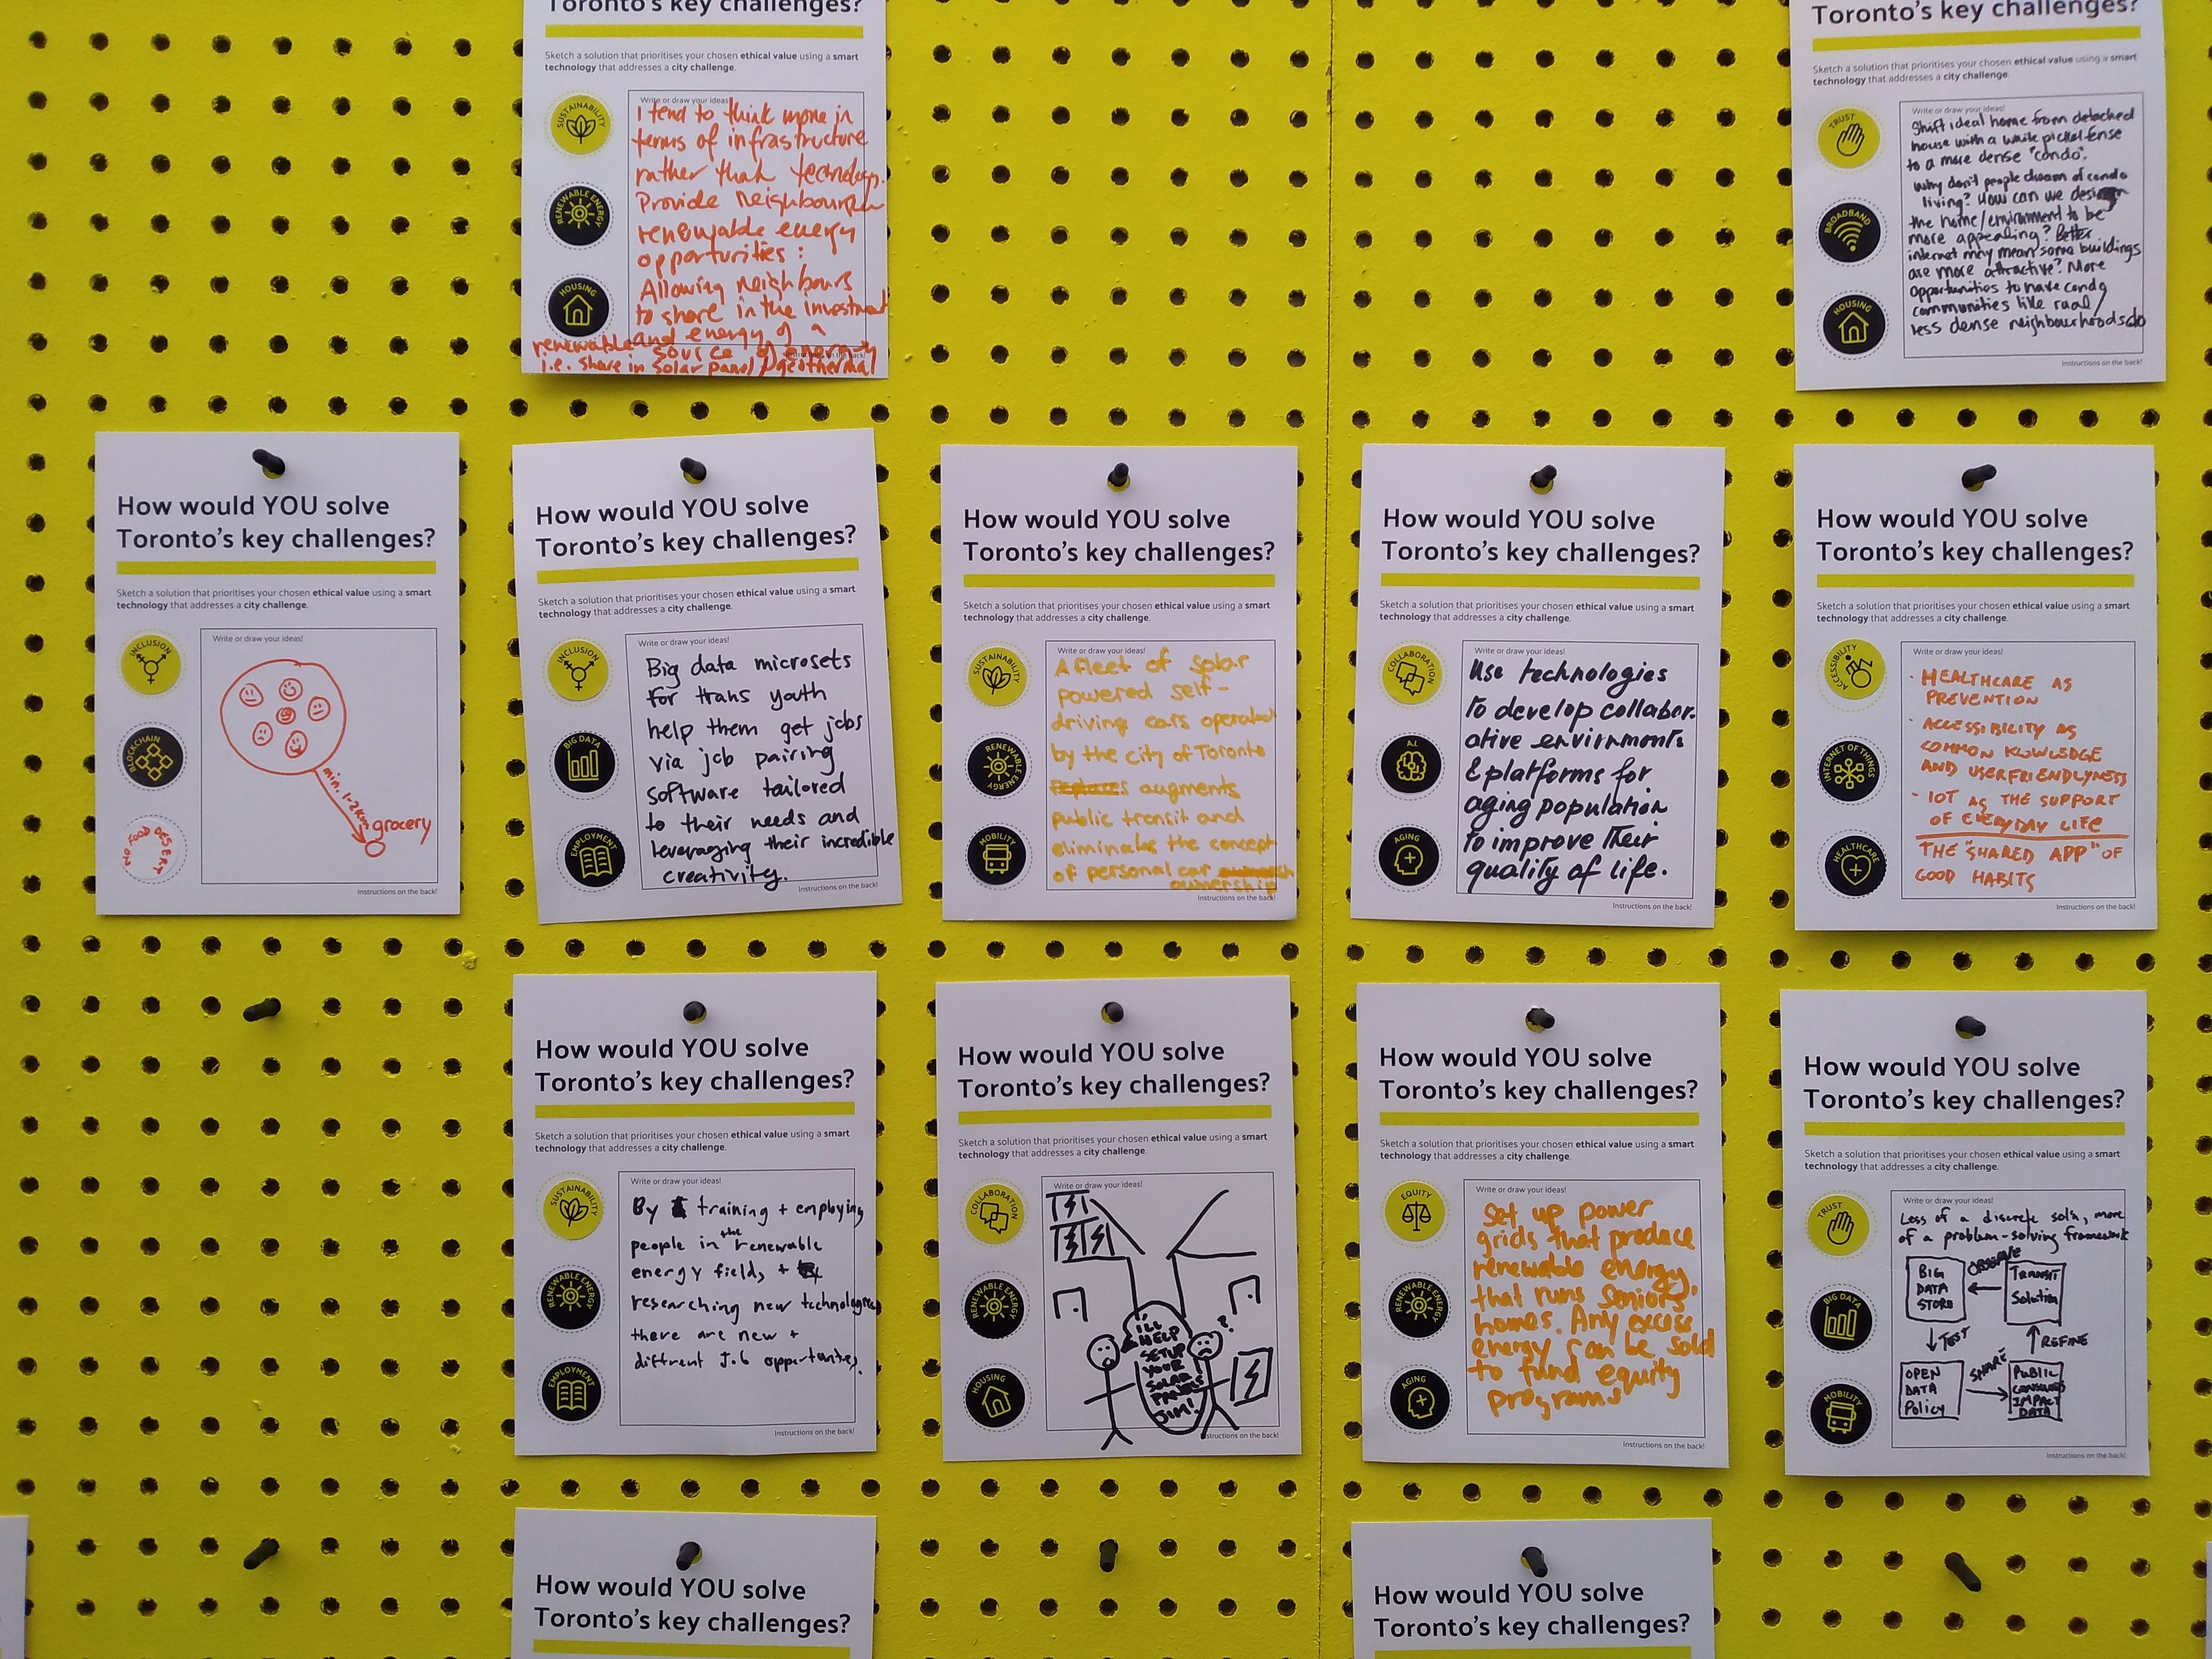 Toronto's key challenges?
Sketch a solution that prioritises your chosen ethical value using a smart
technology that addresses a city challenge.
SUSTAINABILITY
RENEWABLE ENERGY
HOUSING
Write or draw your ideas!
I tend to think more in
terms of infrastructure
rather than technology.
Provide neighbourhood
renewable energy
opportunities:
Allowing neighbours
to share in the investment
and energy of a
renewable source of energy
i.e. share in solar panel/geothermal
Toronto's key challenges?
Sketch a solution that prioritises your chosen ethical value using a smart
technology that addresses a city challenge.
TRUST
BROADBAND
HOUSING
Write or draw your ideas!
Shift ideal home from detached
house with a white picket fense
to a more dense "condo".
Why don't people dream of condo
living? How can we design
the home/environment to be
more appealing? Better
internet may mean some buildings
are more attractive? More
opportunities to have condo
communities like rural/
less dense neighbourhoods do
Instructions on the back!
How would YOU solve
Toronto's key challenges?
Sketch a solution that prioritises your chosen ethical value using a smart
technology that addresses a city challenge.
INCLUSION
BLOCKCHAIN
NO FOOD DESERT
Write or draw your ideas!
min. 1-2km
grocery
Instructions on the back!
How would YOU solve
Toronto's key challenges?
Sketch a solution that prioritises your chosen ethical value using a smart
technology that addresses a city challenge.
INCLUSION
BIG DATA
EMPLOYMENT
Write or draw your ideas!
Big data microsets
for trans youth
help them get jobs
via job pairing
software tailored
to their needs and
leveraging their incredible
creativity.
Instructions on the back!
How would YOU solve
Toronto's key challenges?
Sketch a solution that prioritises your chosen ethical value using a smart
technology that addresses a city challenge.
SUSTAINABILITY
RENEWABLE ENERGY
MOBILITY
Write or draw your ideas!
A fleet of solar
powered self-
driving cars operated
by the city of Toronto
augments
public transit and
eliminates the concept
of personal car
ownership
Instructions on the back!
How would YOU solve
Toronto's key challenges?
Sketch a solution that prioritises your chosen ethical value using a smart
technology that addresses a city challenge.
COLLABORATION
A.I.
AGING
Write or draw your ideas!
Use technologies
to develop collabor-
ative envirnments
& platforms for
aging population
to improve their
quality of life.
Instructions on the back!
How would YOU solve
Toronto's key challenges?
Sketch a solution that prioritises your chosen ethical value using a smart
technology that addresses a city challenge.
ACCESSIBILITY
INTERNET OF THINGS
HEALTHCARE
Write or draw your ideas!
· HEALTHCARE AS
PREVENTION
· ACCESSIBILITY AS
COMMON KNOWLEDGE
AND USERFRIENDLYNESS
· IOT AS THE SUPPORT
OF EVERYDAY LIFE
THE "SHARED APP" OF
GOOD HABITS
Instructions on the back!
How would YOU solve
Toronto's key challenges?
Sketch a solution that prioritises your chosen ethical value using a smart
technology that addresses a city challenge.
SUSTAINABILITY
RENEWABLE ENERGY
EMPLOYMENT
Write or draw your ideas!
By training + employing
people in the renewable
energy fields, +
researching new technologies
there are new +
different job opportunities.
Instructions on the back!
How would YOU solve
Toronto's key challenges?
Sketch a solution that prioritises your chosen ethical value using a smart
technology that addresses a city challenge.
COLLABORATION
RENEWABLE ENERGY
HOUSING
Write or draw your ideas!
I'LL
HELP
SETUP
YOUR
SOLAR
PANELS
JIM!
?
Instructions on the back!
How would YOU solve
Toronto's key challenges?
Sketch a solution that prioritises your chosen ethical value using a smart
technology that addresses a city challenge.
EQUITY
RENEWABLE ENERGY
AGING
Write or draw your ideas!
Set up power
grids that produce
renewable energy,
that runs seniors'
homes. Any excess
energy can be sold
to fund equity
programs
Instructions on the back!
How would YOU solve
Toronto's key challenges?
Sketch a solution that prioritises your chosen ethical value using a smart
technology that addresses a city challenge.
TRUST
BIG DATA
MOBILITY
Write or draw your ideas!
Less of a discrete sol'n, more
of a problem-solving framework
BIG
DATA
STORE
OBSERVE
TRANSIT
Solution
TEST
REFINE
OPEN
DATA
Policy
SHARE
PUBLIC
IMPACT
DATA
Instructions on the back!
How would YOU solve
Toronto's key challenges?
How would YOU solve
Toronto's key challenges?